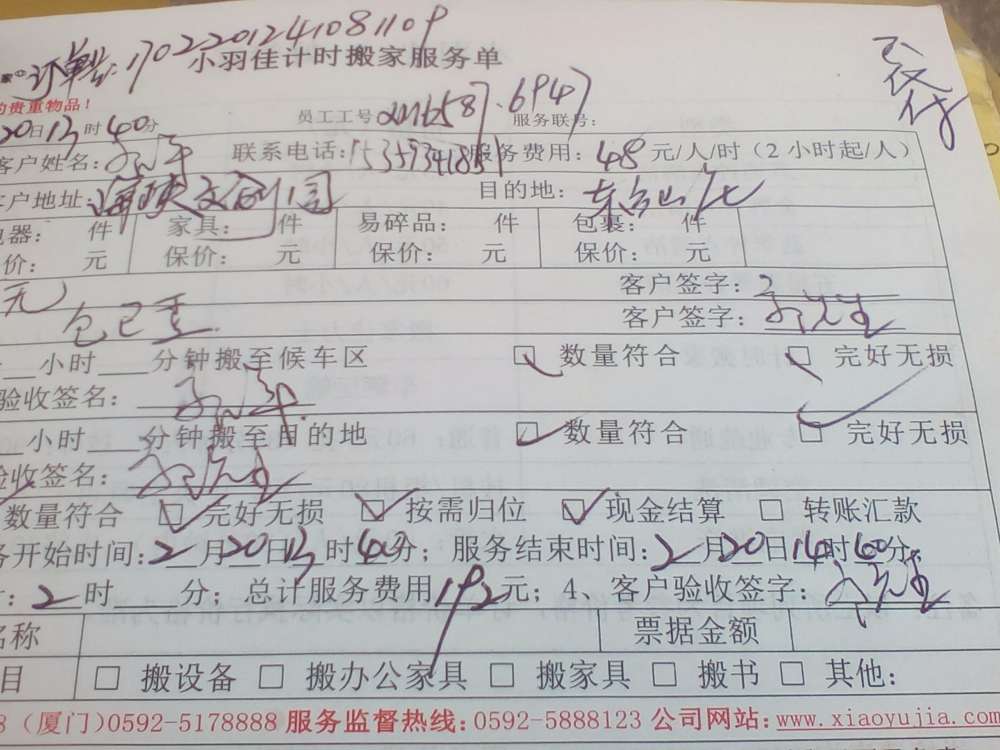 订单号:1702201241081109
小羽佳计时搬家服务单
不代付
的贵重物品!
20日13时40分 员工工号 服务联号: 6947
客户姓名: 联系电话: 服务费用:48元/人/时(2小时起/人)
客户地址:海峡文创园 目的地:
电器: 件 家具: 件 易碎品: 件 包裹: 件
保价: 元 保价: 元 保价: 元 保价: 元
无 客户签字:
包已 客户签字:
小时 分钟搬至候车区 数量符合 完好无损
验收签名:
小时 分钟搬至目的地 数量符合 完好无损
验收签名:
数量符合 完好无损 按需归位 现金结算 转账汇款
务开始时间:2月20日13时40分;服务结束时间:2月20日14时40分;
:2时 分;总计服务费用192元;4、客户验收签字:
名称 票据金额
目 搬设备 搬办公家具 搬家具 搬书 其他:
8(厦门)0592-5178888 服务监督热线:0592-5888123 公司网站:www.xiaoyujia.com